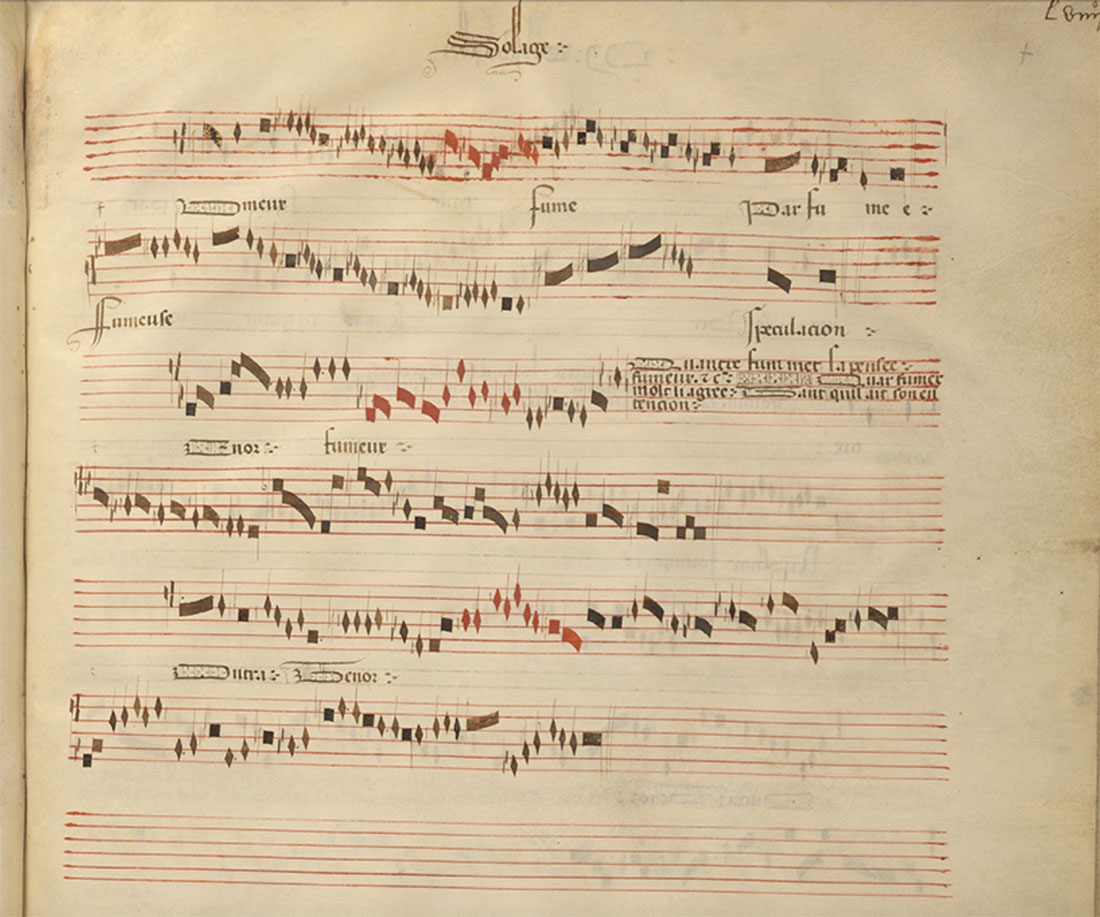 Solage
fumeur fume Par fu me e
fumeuse speculacion
Quantre fum met sa pensee
fumeur &c. Quar fumer
molt li agree Tant quil ait son en
tencion
Tenor fumeur
Contra Tenor